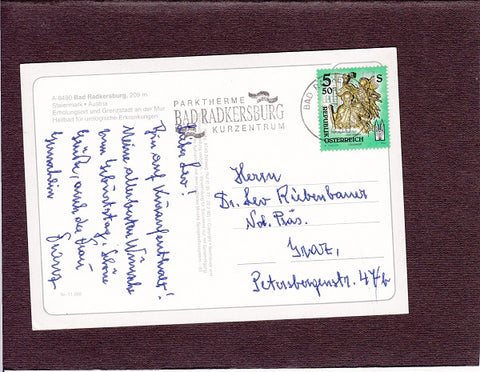 A-8490 Bad Radkersburg, 209 m
Steiermark • Austria
Erholungsort und Grenzstadt an der Mur
Heilbad für urologische Erkrankungen
PARKTHERME
BAD RADKERSBURG
KURZENTRUM
BAD
5 50 S
REPUBLIK
ÖSTERREICH
Lieber Leo!
Bin auf Kuraufenthalt!
Meine allerbesten Wünsche
zum Geburtstag, schöne
Grüße, auch der Frau
Gemahlin
Franz
Herrn
Dr. Leo Riebenbauer
Not. Präs.
Graz,
Petersbergenstr. 47b